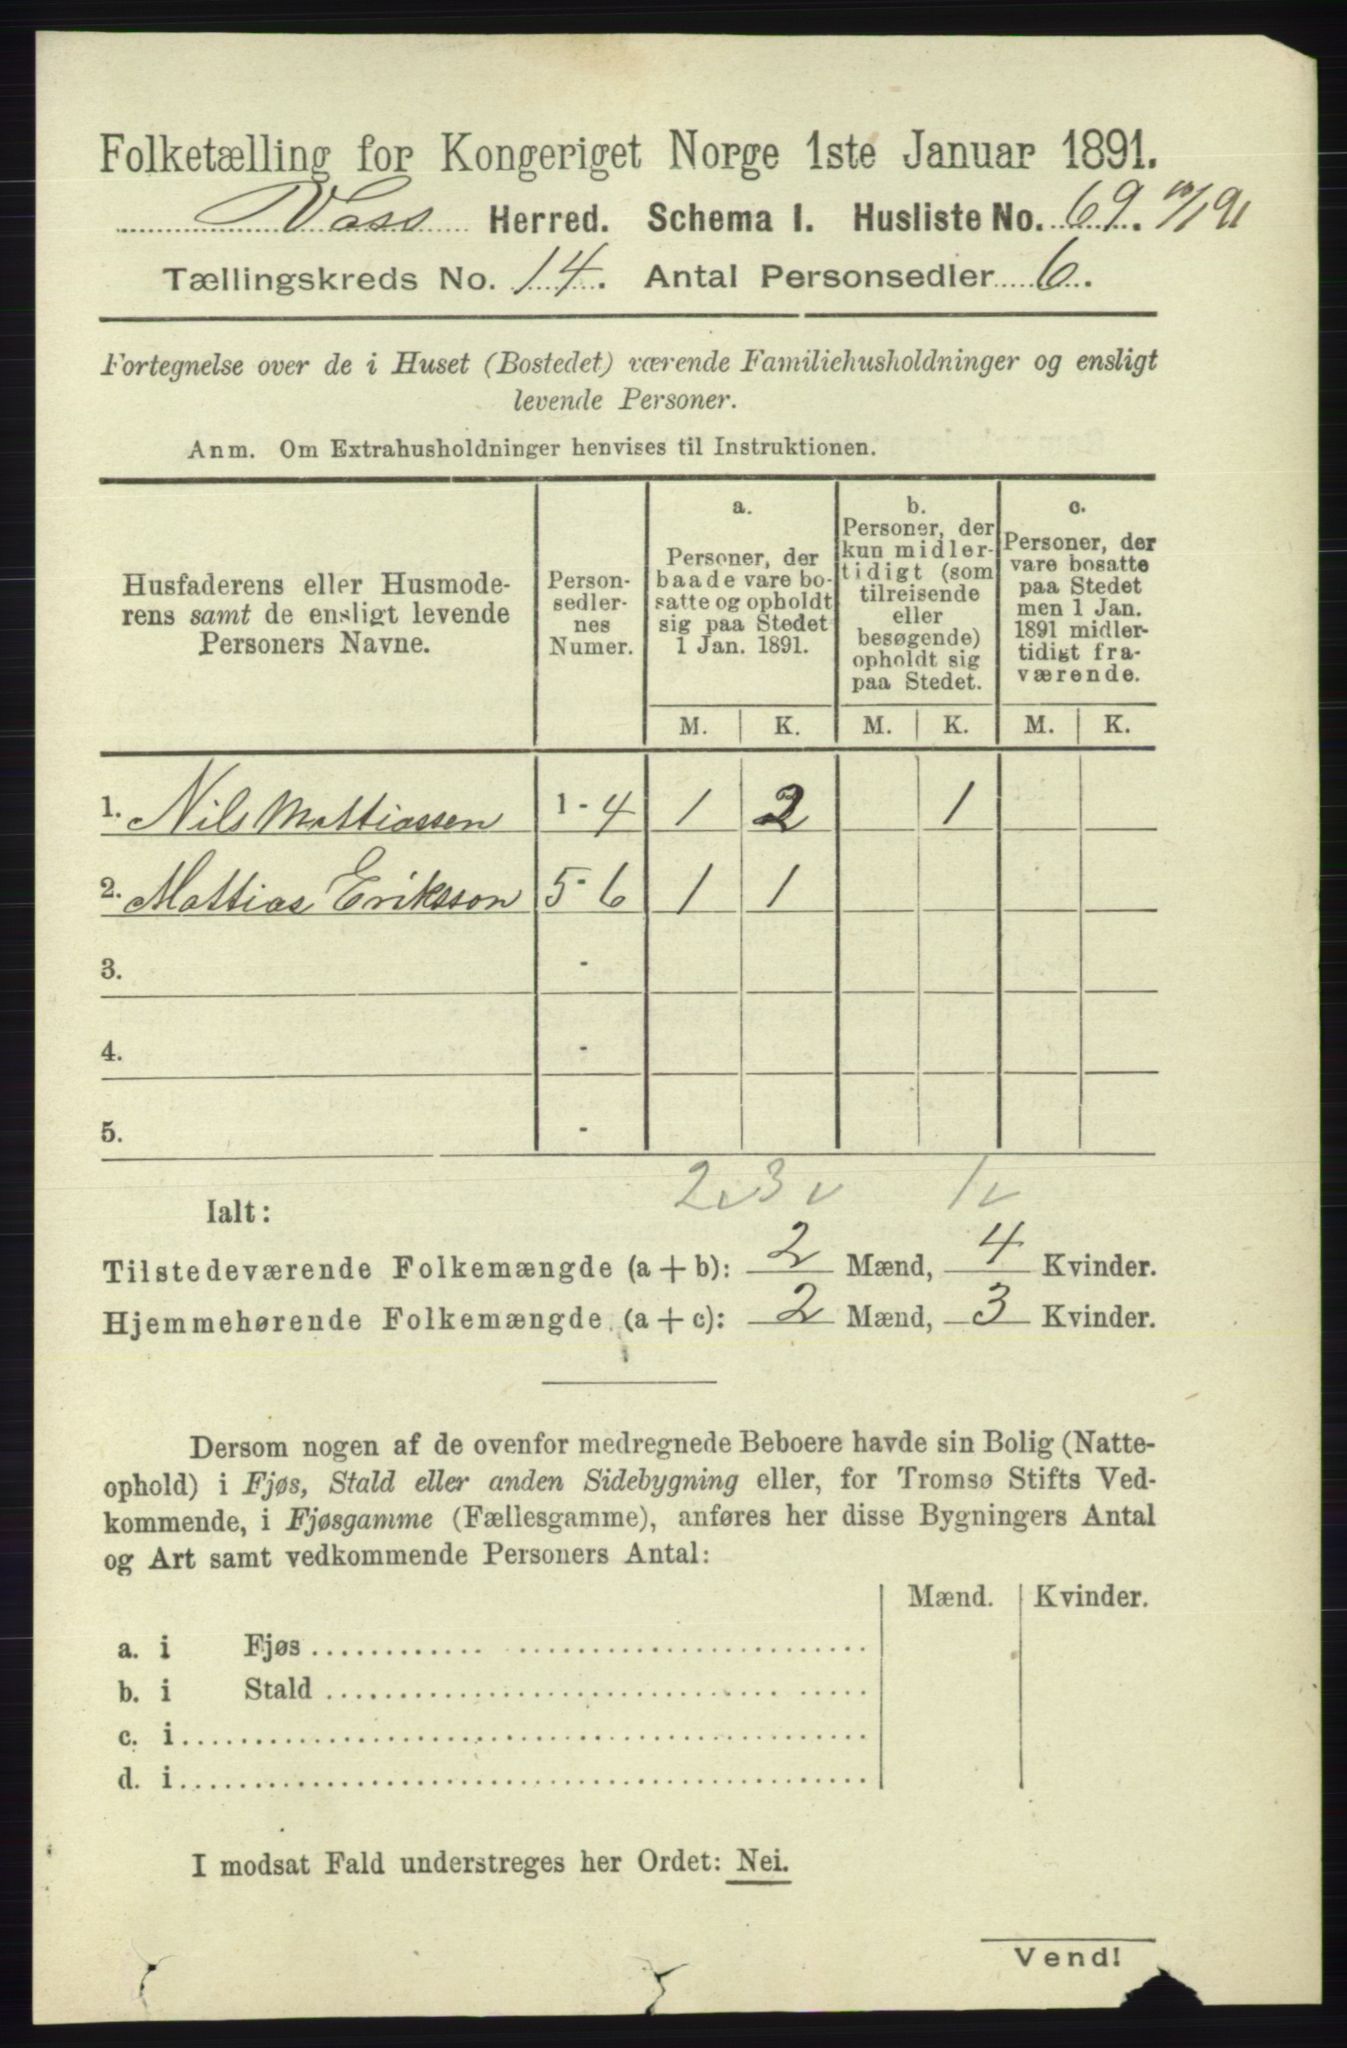 Folketælling for Kongeriget Norge 1ste Januar 1891.
Voss Herred. Schema I. Husliste No. 69. 10/1 91
Tællingskreds No. 14. Antal Personsedler 6.
Fortegnelse over de i Huset (Bostedet) værende Familiehusholdninger og ensligt
levende Personer.
Anm. Om Extrahusholdninger henvises til Instruktionen.
Husfaderens eller Husmode-
rens samt de ensligt levende
Personers Navne.
Person-
sedler-
nes
Numer.
a.
Personer, der
baade vare bo-
satte og opholdt
sig paa Stedet
1 Jan. 1891.
b.
Personer, der
kun midler-
tidigt (som
tilreisende
eller
besøgende)
opholdt sig
paa Stedet.
c.
Personer, der
vare bosatte
paa Stedet
men 1 Jan.
1891 midler-
tidigt fra-
værende.
M. K. M. K. M. K.
1. Nils Mattiassen 1 - 4 1 2 1
2. Mattias Eriksson 5 - 6 1 1
3. -
4. -
5. -
2 v 3 v 1 v
Ialt:
Tilstedeværende Folkemængde (a + b): 2 Mænd, 4 Kvinder.
Hjemmehørende Folkemængde (a + c): 2 Mænd, 3 Kvinder.
Dersom nogen af de ovenfor medregnede Beboere havde sin Bolig (Natte-
ophold) i Fjøs, Stald eller anden Sidebygning eller, for Tromsø Stifts Ved-
kommende, i Fjøsgamme (Fællesgamme), anføres her disse Bygningers Antal
og Art samt vedkommende Personers Antal:
Mænd. Kvinder.
a. i Fjøs
b. i Stald
c. i
d. i
I modsat Fald understreges her Ordet: Nei.
Vend!